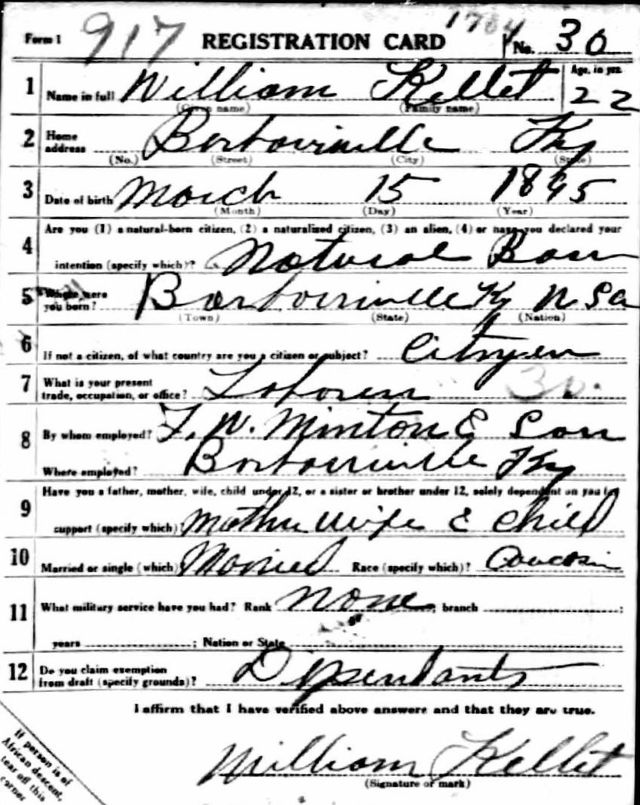 Form 1 917 REGISTRATION CARD No. 30
1 Name in full William Kellet Age, in yrs. 22
(Given name) (Family name)
2 Home address Borbourville Ky
(No.) (Street) (City) (State)
3 Date of birth March 15 1895
(Month) (Day) (Year)
4 Are you (1) a natural-born citizen, (2) a naturalized citizen, (3) an alien, (4) or have you declared your
intention (specify which)? Natural Born
5 Where were you born? Barbourville Ky USA
(Town) (State) (Nation)
6 If not a citizen, of what country are you a citizen or subject? Citizen
7 What is your present trade, occupation, or office? Laborer 30.
8 By whom employed? T. W. Minton & Son
Where employed? Barbourville Ky
9 Have you a father, mother, wife, child under 12, or a sister or brother under 12, solely dependent on you for
support (specify which)? Mother Wife & Child
10 Married or single (which)? Married Race (specify which)?
11 What military service have you had? Rank None ; branch ;
years ; Nation or State
12 Do you claim exemption from draft (specify grounds)? Dependants
I affirm that I have verified above answers and that they are true.
William Kellet
(Signature or mark)
If person is of
African descent,
tear off this
corner